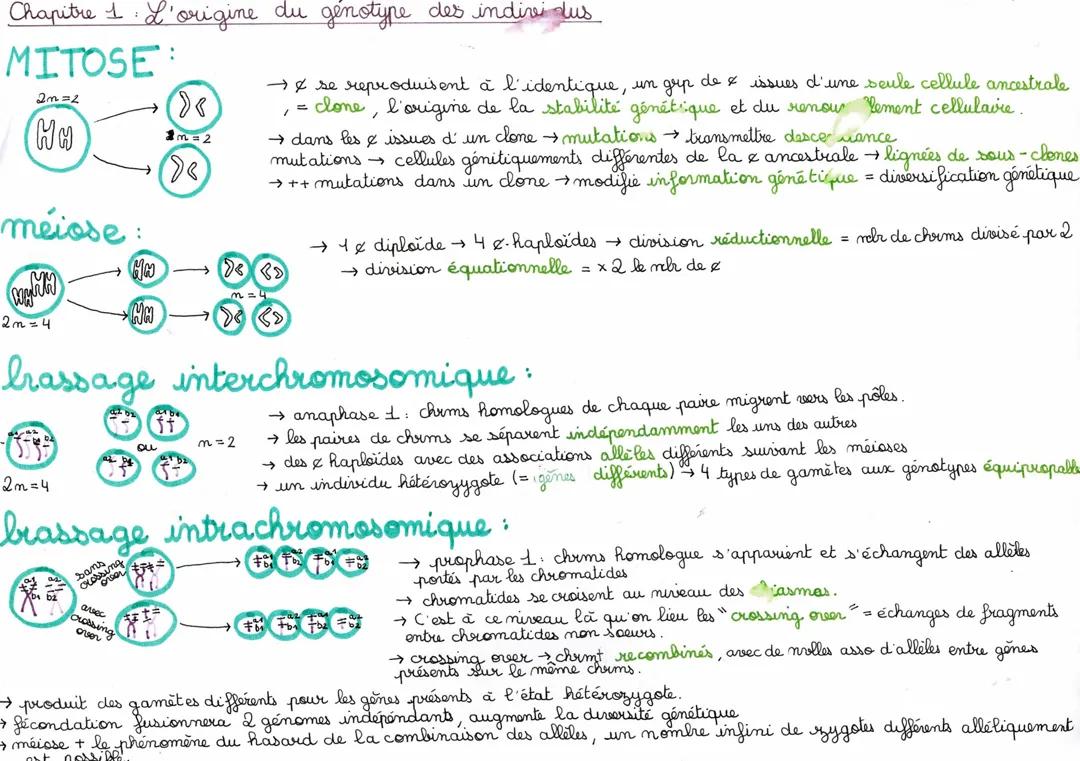 Chapitre 1 : L'origine du génotype des individus
MITOSE :
2n=2
2n=2
→ ¢ se reproduisent à l'identique, un grp de ¢ issues d'une seule cellule ancestrale
, = clone, l'origine de la stabilité génétique et du renouvellement cellulaire.
→ dans les ¢ issues d'un clone → mutations → transmettre descendance
mutations → cellules génitiquements différentes de la ¢ ancestrale → lignées de sous-clones
→ ++ mutations dans un clone → modifie information génétique = diversification génétique
méiose :
2n=4
n=4
→ 1 ¢ diploïde → 4 ¢ haploïdes → division réductionnelle = nbr de chrms divisé par 2
→ division équationnelle = x2 le nbr de ¢
brassage interchromosomique :
a1 a2 b1 b2
2n=4
a2 b2
a1 b1
ou
a2 b1
a1 b2
n=2
→ anaphase 1 : chrms homologues de chaque paire migrent vers les pôles.
→ les paires de chrms se séparent indépendamment les uns des autres
→ des ¢ haploïdes avec des associations allèles différents suivant les méioses
→ un individu hétérozygote (= gènes différents) → 4 types de gamètes aux génotypes équipropable
brassage intrachromosomique :
a1 a2
b1 b2
sans crossing over
avec crossing over
a1 b1
a2 b2
a1 b1
a2 b2
→ prophase 1 : chrms homologue s'apparient et s'échangent des allèles
portés par les chromatides
→ chromatides se croisent au niveau des chiasmas.
→ C'est à ce niveau là qu'on lieu les "crossing over" = échanges de fragments
entre chromatides non soeurs.
→ crossing over → chrmt recombinés, avec de nvlles asso d'allèles entre gènes
présents sur le même chrms.
→ produit des gamètes différents pour les gènes présents à l'état hétérozygote.
→ fécondation fusionnera 2 génomes indépendants, augmente la diversité génétique
→ méiose + le phénomène du hasard de la combinaison des allèles, un nombre infini de zygotes différents alléliquement
est possible.